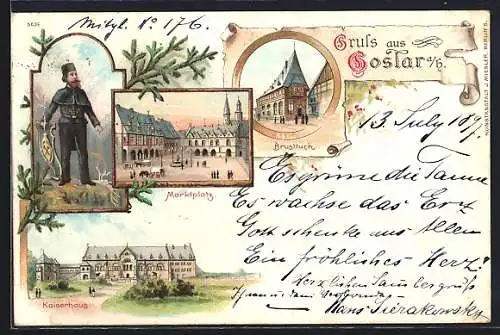 5634
Mitgl. No 176.
Gruss aus
Goslar a/H.
KUNSTANSTALT J. MIESLER, BERLIN S.
Brusttuch
Marktplatz
Kaiserhaus
13. July 1897
Es grüne die Tanne
Es wachse das Erz
Gott schenke uns Allen
Ein fröhliches Herz!
Herzlichen Saus bergruß
Hans Sierakowsky